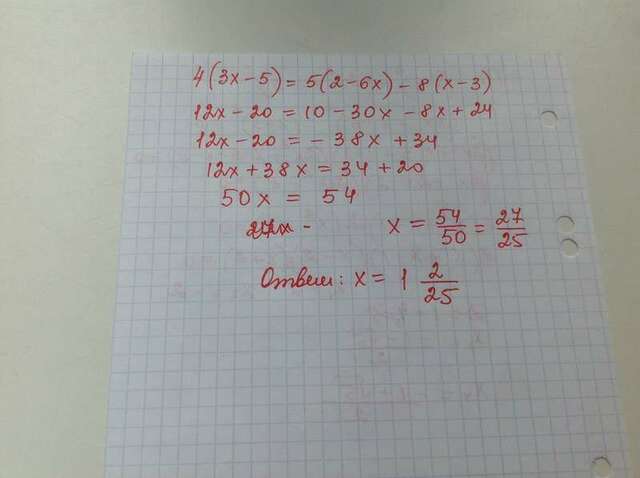 4(3x-5) = 5(2-6x) - 8(x-3)
12x - 20 = 10 - 30x - 8x + 24
12x - 20 = - 38x + 34
12x + 38x = 34 + 20
50x = 54
x = 54/50 = 27/25
Ответ: x = 1 2/25